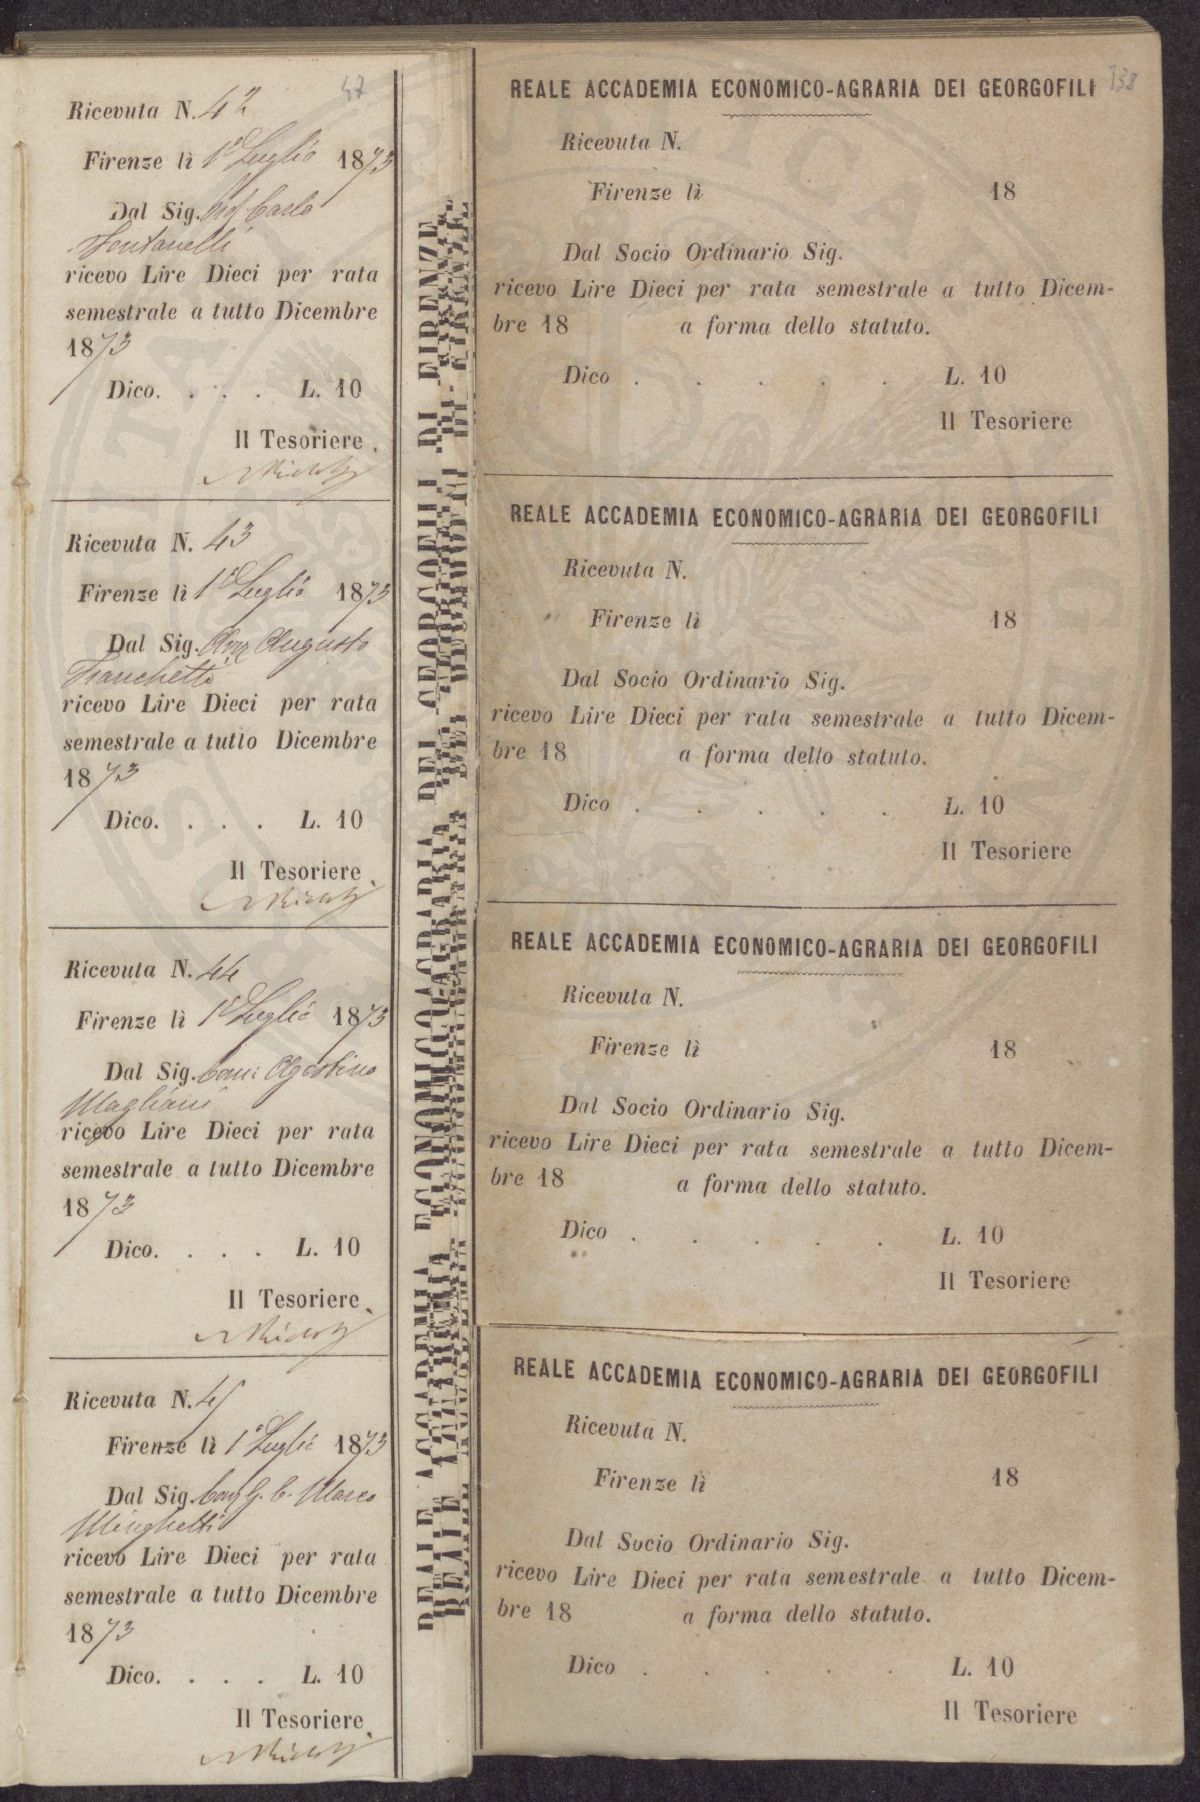 47
Ricevuta N. 42
Firenze lì 1° Luglio 1873
Dal Sig. Prof Carlo
Fontanelli
ricevo Lire Dieci per rata
semestrale a tutto Dicembre
1873
Dico. . . . L. 10
Il Tesoriere
Ricevuta N. 43
Firenze lì 1° Luglio 1873
Dal Sig. Avv Augusto
Franchetti
ricevo Lire Dieci per rata
semestrale a tutto Dicembre
1873
Dico. . . . L. 10
Il Tesoriere
Ricevuta N. 44
Firenze lì 1° Luglio 1873
Dal Sig. Com: Agostino
Magliani
ricevo Lire Dieci per rata
semestrale a tutto Dicembre
1873
Dico. . . . L. 10
Il Tesoriere
Ricevuta N. 45
Firenze lì 1° Luglio 1873
Dal Sig. Cav G. C. Marco
Minghetti
ricevo Lire Dieci per rata
semestrale a tutto Dicembre
1873
Dico. . . . L. 10
Il Tesoriere
REALE ACCADEMIA ECONOMICO-AGRARIA DEI GEORGOFILI DI FIRENZE
138
REALE ACCADEMIA ECONOMICO-AGRARIA DEI GEORGOFILI
Ricevuta N.
Firenze lì 18
Dal Socio Ordinario Sig.
ricevo Lire Dieci per rata semestrale a tutto Dicem-
bre 18 a forma dello statuto.
Dico . . . . . L. 10
Il Tesoriere
REALE ACCADEMIA ECONOMICO-AGRARIA DEI GEORGOFILI
Ricevuta N.
Firenze lì 18
Dal Socio Ordinario Sig.
ricevo Lire Dieci per rata semestrale a tutto Dicem-
bre 18 a forma dello statuto.
Dico . . . . . L. 10
Il Tesoriere
REALE ACCADEMIA ECONOMICO-AGRARIA DEI GEORGOFILI
Ricevuta N.
Firenze lì 18
Dal Socio Ordinario Sig.
ricevo Lire Dieci per rata semestrale a tutto Dicem-
bre 18 a forma dello statuto.
Dico . . . . . L. 10
Il Tesoriere
REALE ACCADEMIA ECONOMICO-AGRARIA DEI GEORGOFILI
Ricevuta N.
Firenze lì 18
Dal Socio Ordinario Sig.
ricevo Lire Dieci per rata semestrale a tutto Dicem-
bre 18 a forma dello statuto.
Dico . . . . . L. 10
Il Tesoriere